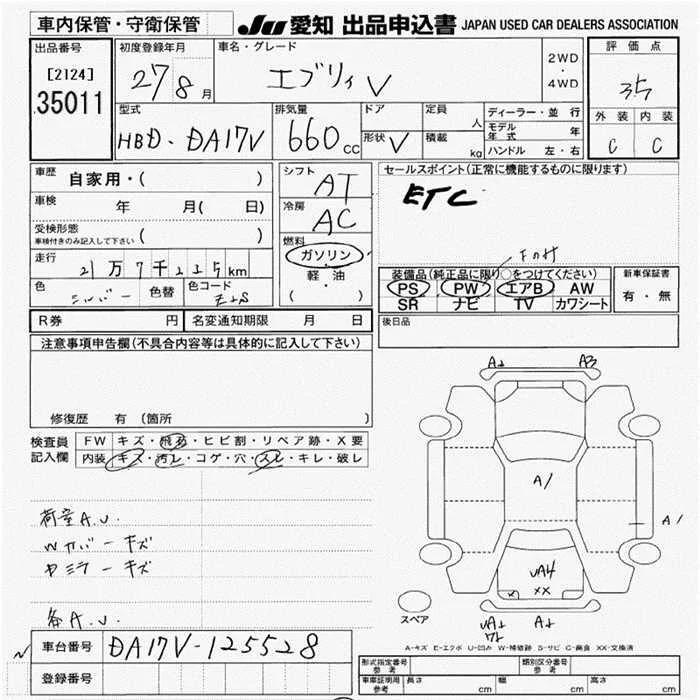 車内保管・守衛保管
JU 愛知 出品申込書 JAPAN USED CAR DEALERS ASSOCIATION
出品番号
[2124]
35011
初度登録年月
27 8月
車名・グレード
エブリィ V
2WD
・
4WD
評価点
3.5
外装 内装
C C
型式
HBD-DA17V
排気量
660cc
ドア
形状 V
定員 人
積載 kg
ディーラー・並行
モデル年式 年
ハンドル 左・右
車歴
自家用・( )
車検 年 月( 日)
受検形態
車検付きのみ記入して下さい ( )
走行
21万7千225km
色 シルバー
色替
色コード
シフト AT
冷房 AC
燃料
ガソリン
軽・油
( )
セールスポイント(正常に機能するものに限ります)
ETC
装備品(純正品に限り○をつけてください)
PS PW エアB AW
SR ナビ TV カワシート
新車保証書
有・無
R券 円
名変通知期限 月 日
後日品
注意事項申告欄(不具合内容等は具体的に記入して下さい)
修復歴 有 (箇所 )
検査員
記入欄
FW キズ・飛石・ヒビ割・リペア跡・X要
内装 キズ・汚レ・コゲ・穴・スレ・キレ・破レ
荷室A.U.
Wカバーキズ
各A.U.
A2 A3
A1
A1
UA4
XX
UA2
A2
スペア
A-キズ E-エクボ U-凹み W-補修跡 S-サビ C-腐食 XX-交換済
車台番号
DA17V-125528
登録番号
形式指定番号
参考
類別区分番号
参考
車庫証明用
参考
長さ cm
幅 cm
高さ cm